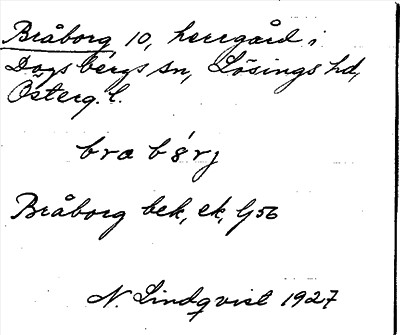 Bråborg 10, herrgård i
Dagsbergs sn, Lösings hd,
Österg. l.
bra b
Bråborg bek, ek, G56
N. Lindqvist 1927